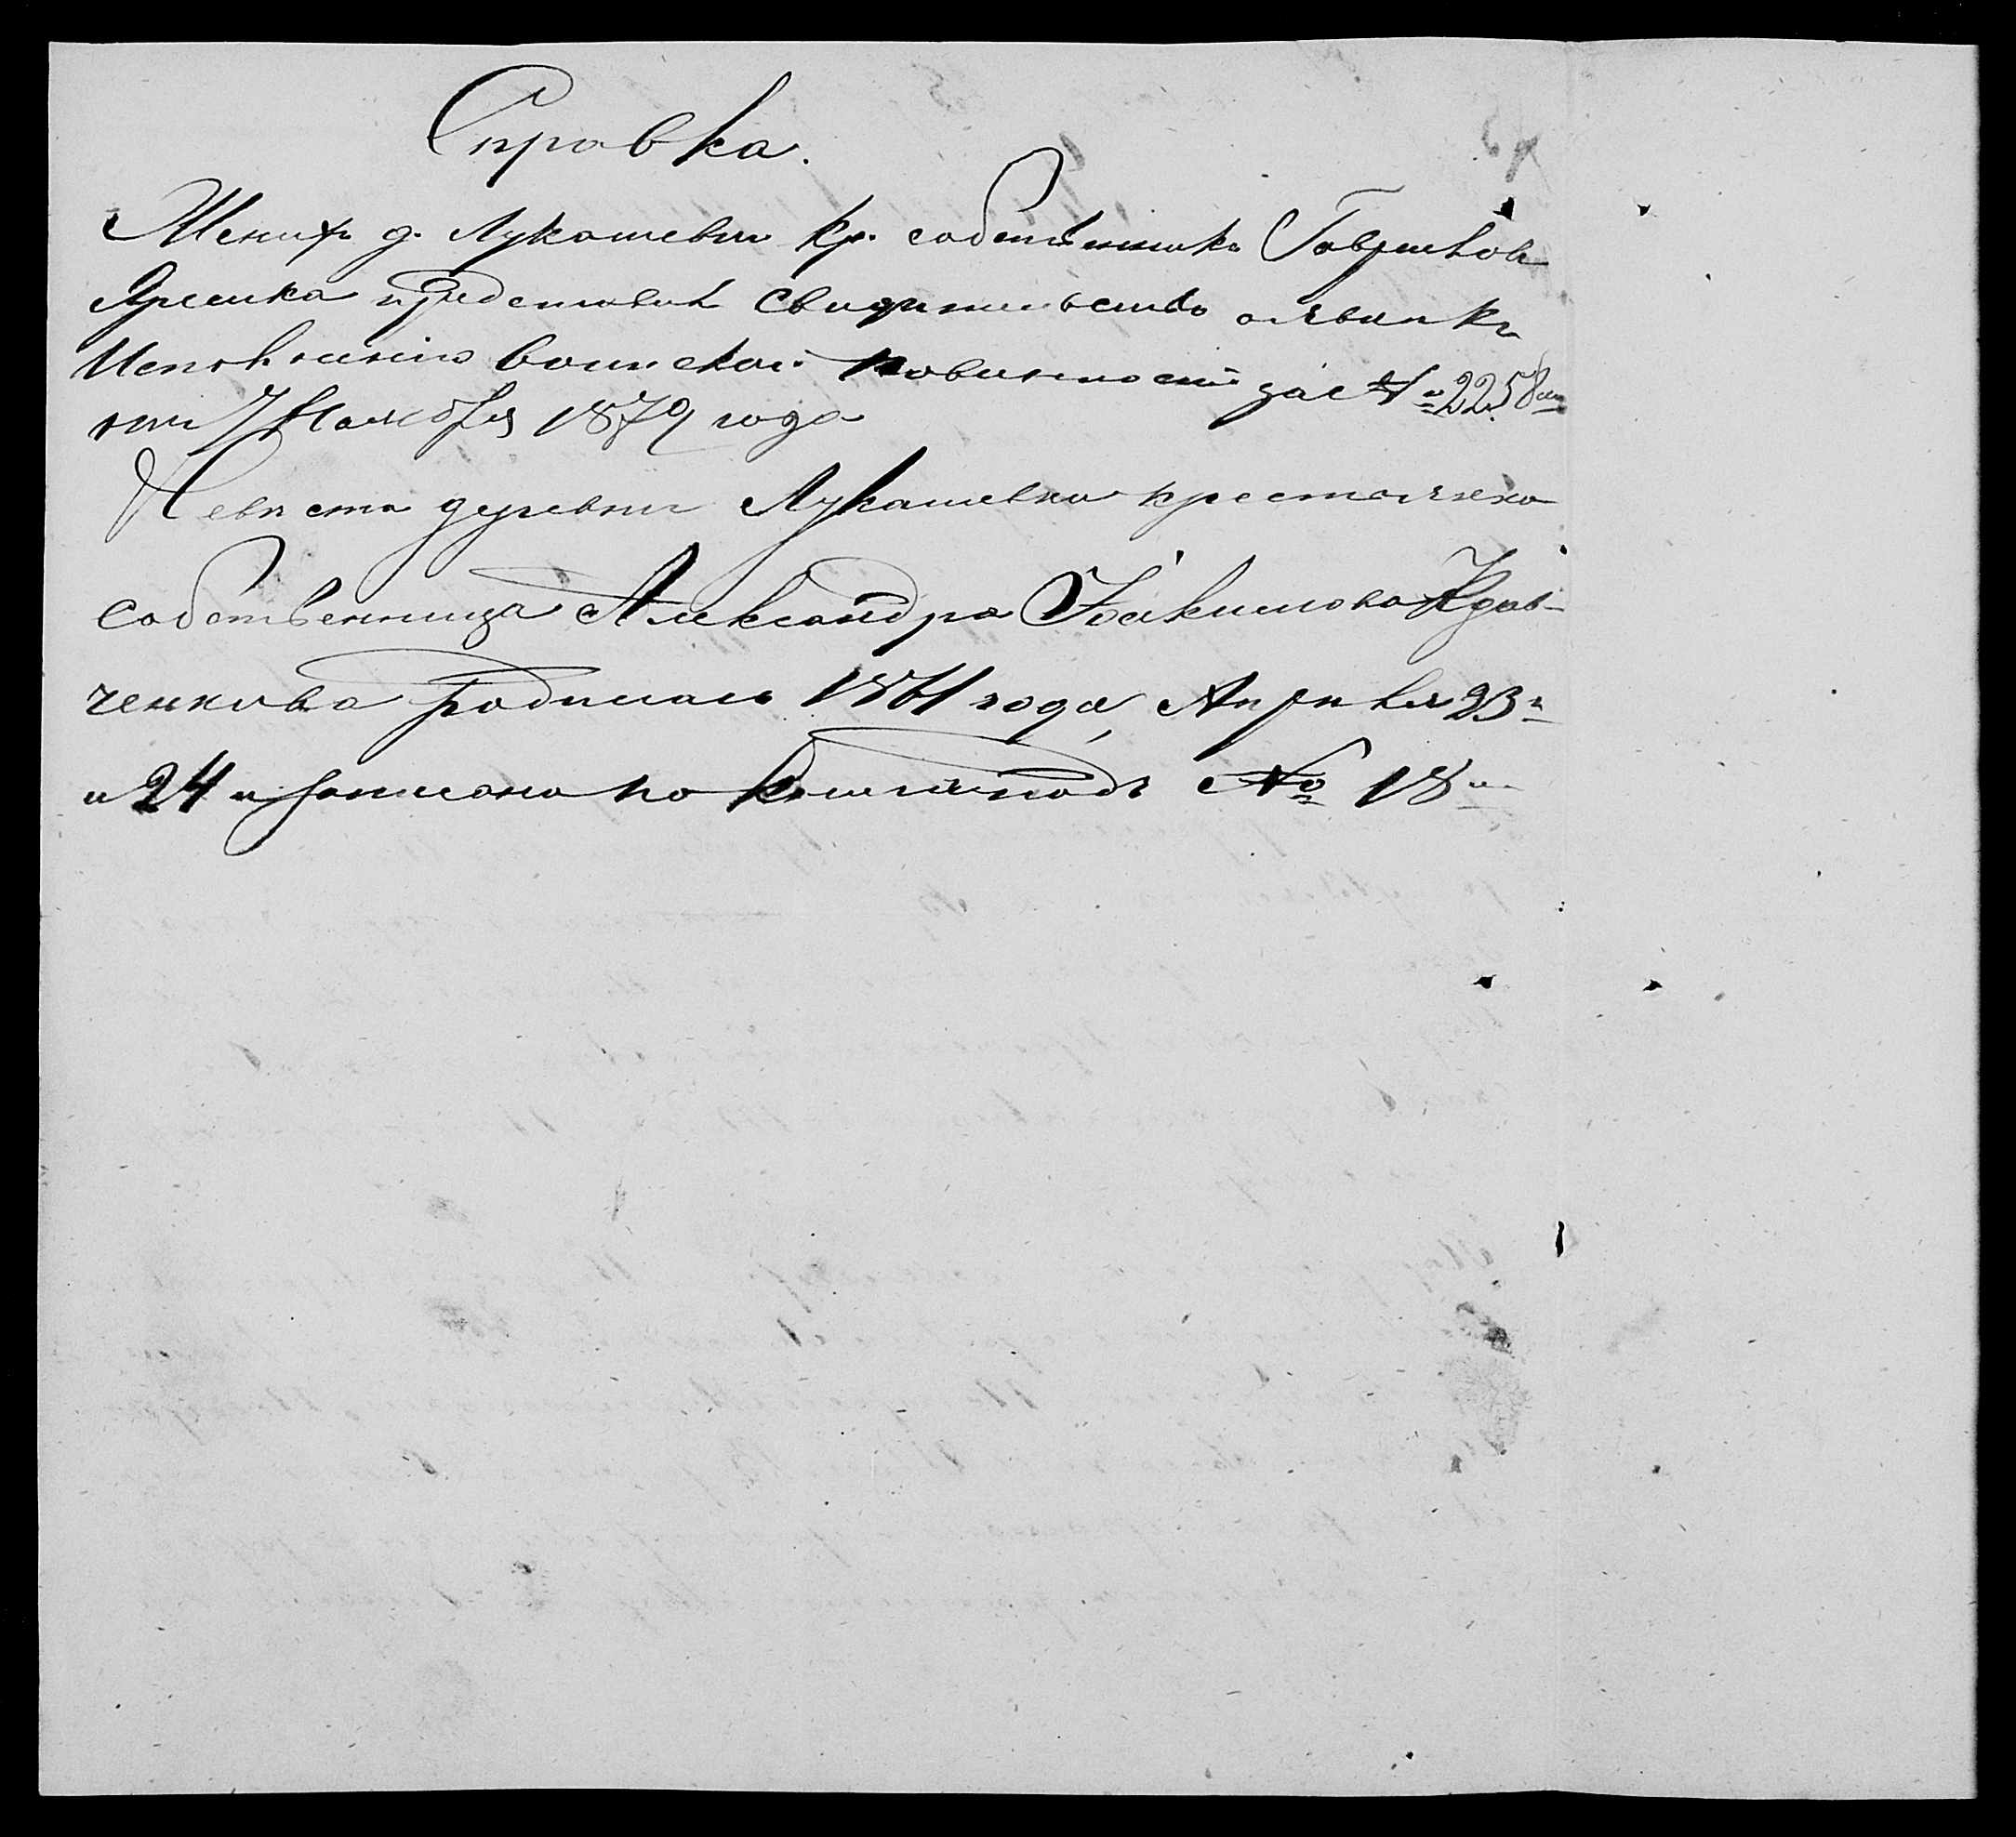 Справка.
Женихъ д. Лукашевки кр. собственникъ Гавриилъ
Яремка представилъ свидѣтельство о явкѣ къ
Исполненiю воинской повинности за № 2258мъ
отъ 7 Ноября 1879 года
Невѣста деревни Лукашевки крестьянка
собственница Александра Iоакимова Кравченкова
родилась 1861 года, Апрѣля 23
и 24 записана по книгѣ подъ № 18мъ